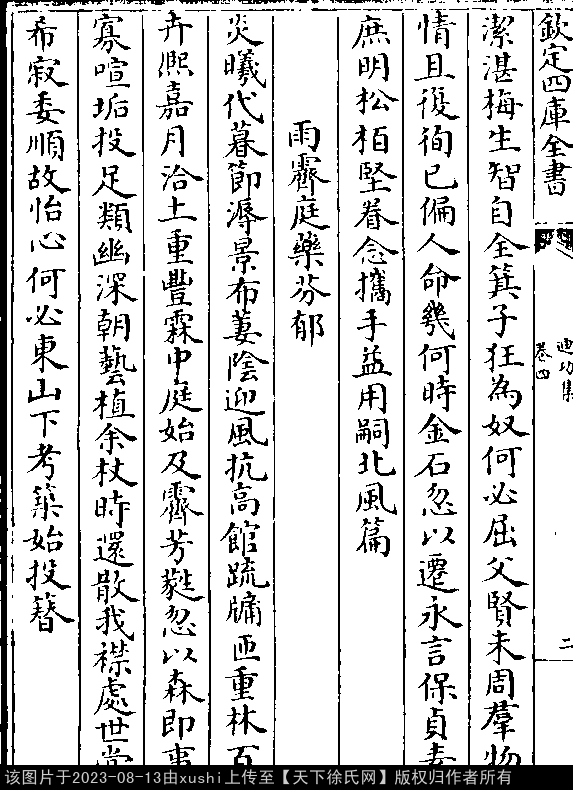 欽定四庫全書
迪功集
卷四
二
潔湛梅生智自全箕子狂為奴何必屈父賢未周羣物
情且復徇已偏人命幾何時金石忽以遷永言保貞素
庶明松栢堅眷念攜手益用嗣北風篇
雨霽庭樂芬郁
炎曦代暮節溽景布萋陰迎風抗高館疏牖匝重林百
卉熈嘉月洽土重豐霖中庭始及霽芳蕤忽以森即事
寡喧垢投足類幽深朝藝植余杖時還散我襟處世尚
希寂委順故怡心何必東山下考築始投簮
该图片于2023-08-13由xushi上传至【天下徐氏网】版权归作者所有